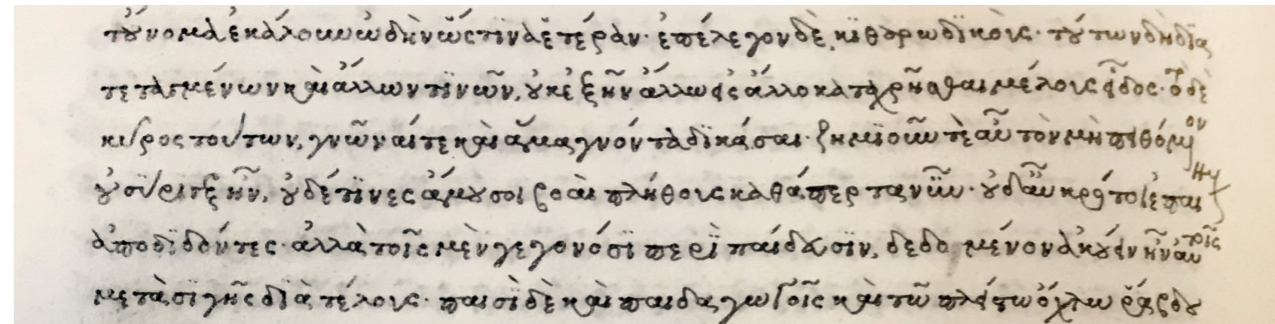 τοὔνομα ἐκάλουν ὠδὴν ὥς τινα ἑτέραν· ἐπέλεγον δὲ κιθαρωδικούς· τούτων δὴ δια
τεταγμένων καὶ ἄλλων τινῶν, οὐκ ἐξῆν ἄλλω εἰς ἄλλο καταχρῆσθαι μέλους εἶδος· τὸ δὲ
κῦρος τούτων, γνῶναί τε καὶ ἅμα γνόντα δικάσαι· ζημιοῦν τὲ αὖ τὸν μὴ πειθόμενον
οὐ σύριγξ ἦν, οὐδέ τινες ἄμουσοι βοαὶ πλήθους καθάπερ τανῦν· οὐδ αὖ κρότοι ἐπαι
ἀποδιδόντες· ἀλλὰ τοῖς μὲν γεγονόσι περὶ παίδευσιν, δεδογμένον ἀκούειν ἦν αὐτοῖς
μετὰ σιγῆς διὰ τέλους· παισὶ δὲ καὶ παιδαγωγοῖς καὶ τῶ πλείστω ὄχλω ῥάβδου